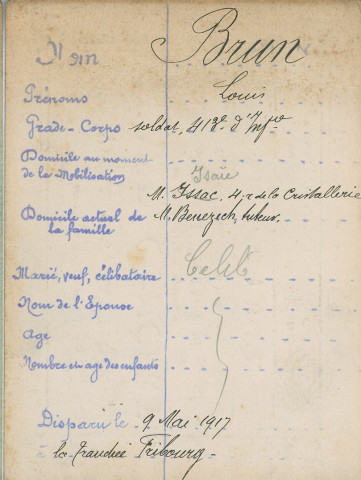 Nom Brun
Prénoms Louis
Grade-Corps soldat, 412e d'Infie
Domicile au moment
de la Mobilisation Isaïe
M. Issac, 4, r de la Cristallerie
Domicile actuel de M. Benezech, tuteur.
la famille
Marié, veuf, célibataire Celib
Nom de l'Epouse
Age
Nombre et age des enfants
Disparu le 9 Mai 1917
à la tranchée Fribourg-